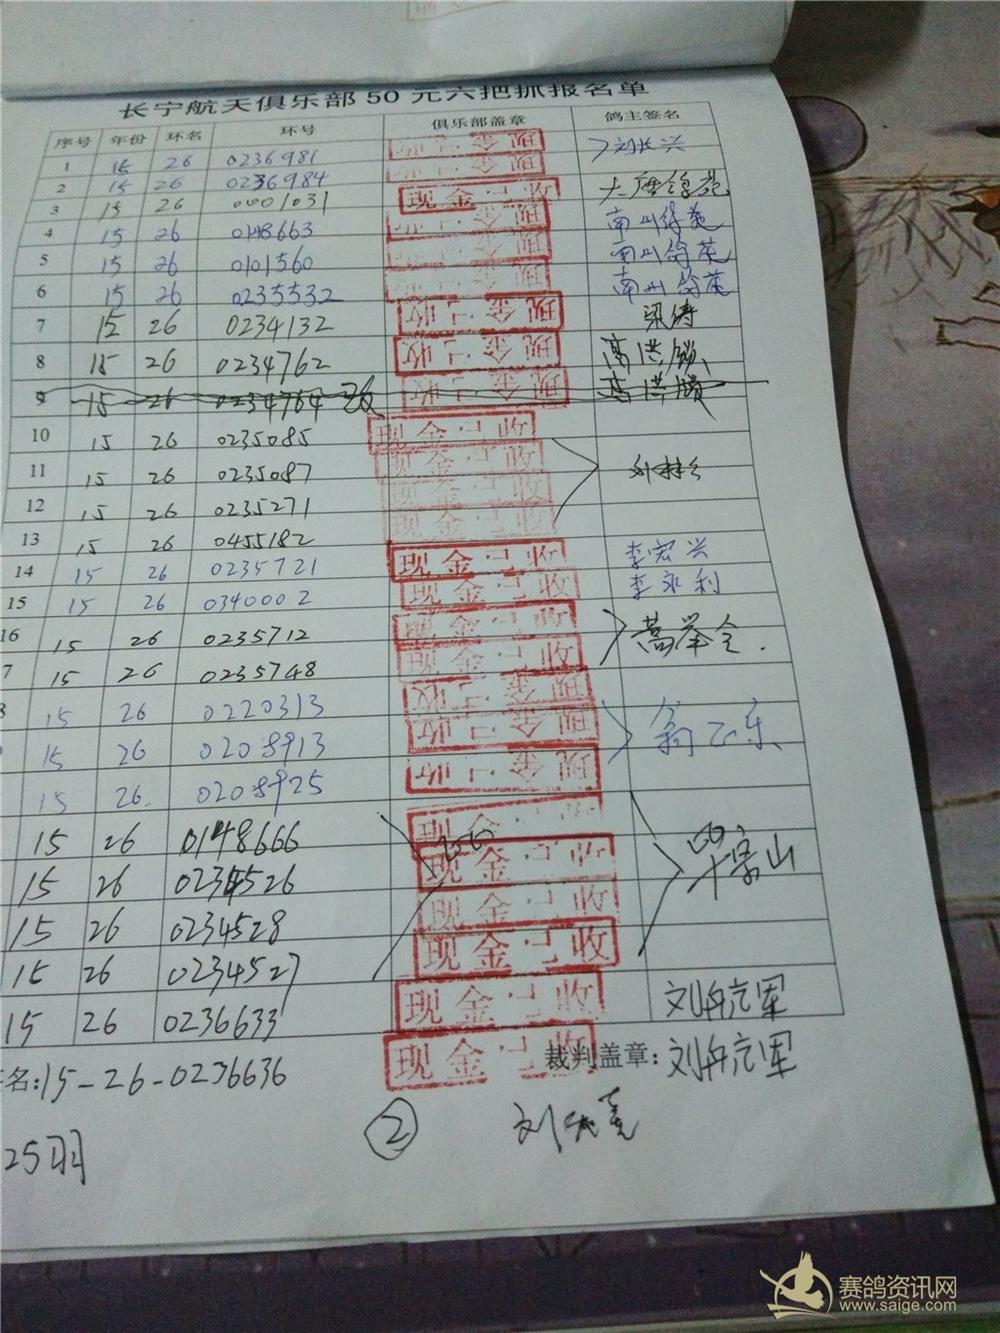 长宁航天俱乐部50元六把抓报名单
序号 年份 环名 环号 俱乐部盖章 鸽主签名
1 15 26 0236981 现金已收 刘长兴
2 15 26 0236984 现金已收
3 15 26 0001031 现金已收 大唐
4 15 26 0148663 现金已收 南山鸽苑
5 15 26 0101560 现金已收 南山鸽苑
6 15 26 0235532 现金已收 南山鸽苑
7 15 26 0234132 现金已收 梁涛
8 15 26 0234762 现金已收 高洪
9 15 26 0234764 改 现金已收 高洪
10 15 26 0235085 现金已收
11 15 26 0235087 现金已收
12 15 26 0235271 现金已收
13 15 26 0455182 现金已收
14 15 26 0235721 现金已收 李宏兴
15 15 26 0340002 现金已收 李永利
16 15 26 0235712 现金已收
7 15 26 0235748 现金已收
8 15 26 0220313 现金已收
15 26 0208913 现金已收
15 26 0208925 现金已收
15 26 0148666 现金已收
15 26 0234526 现金已收
15 26 0234528 现金已收
15 26 0234527 现金已收
15 26 0236633 现金已收
名:15-26-0236636 现金已收 裁判盖章:
② 刘
25羽
赛鸽资讯网
www.saige.com